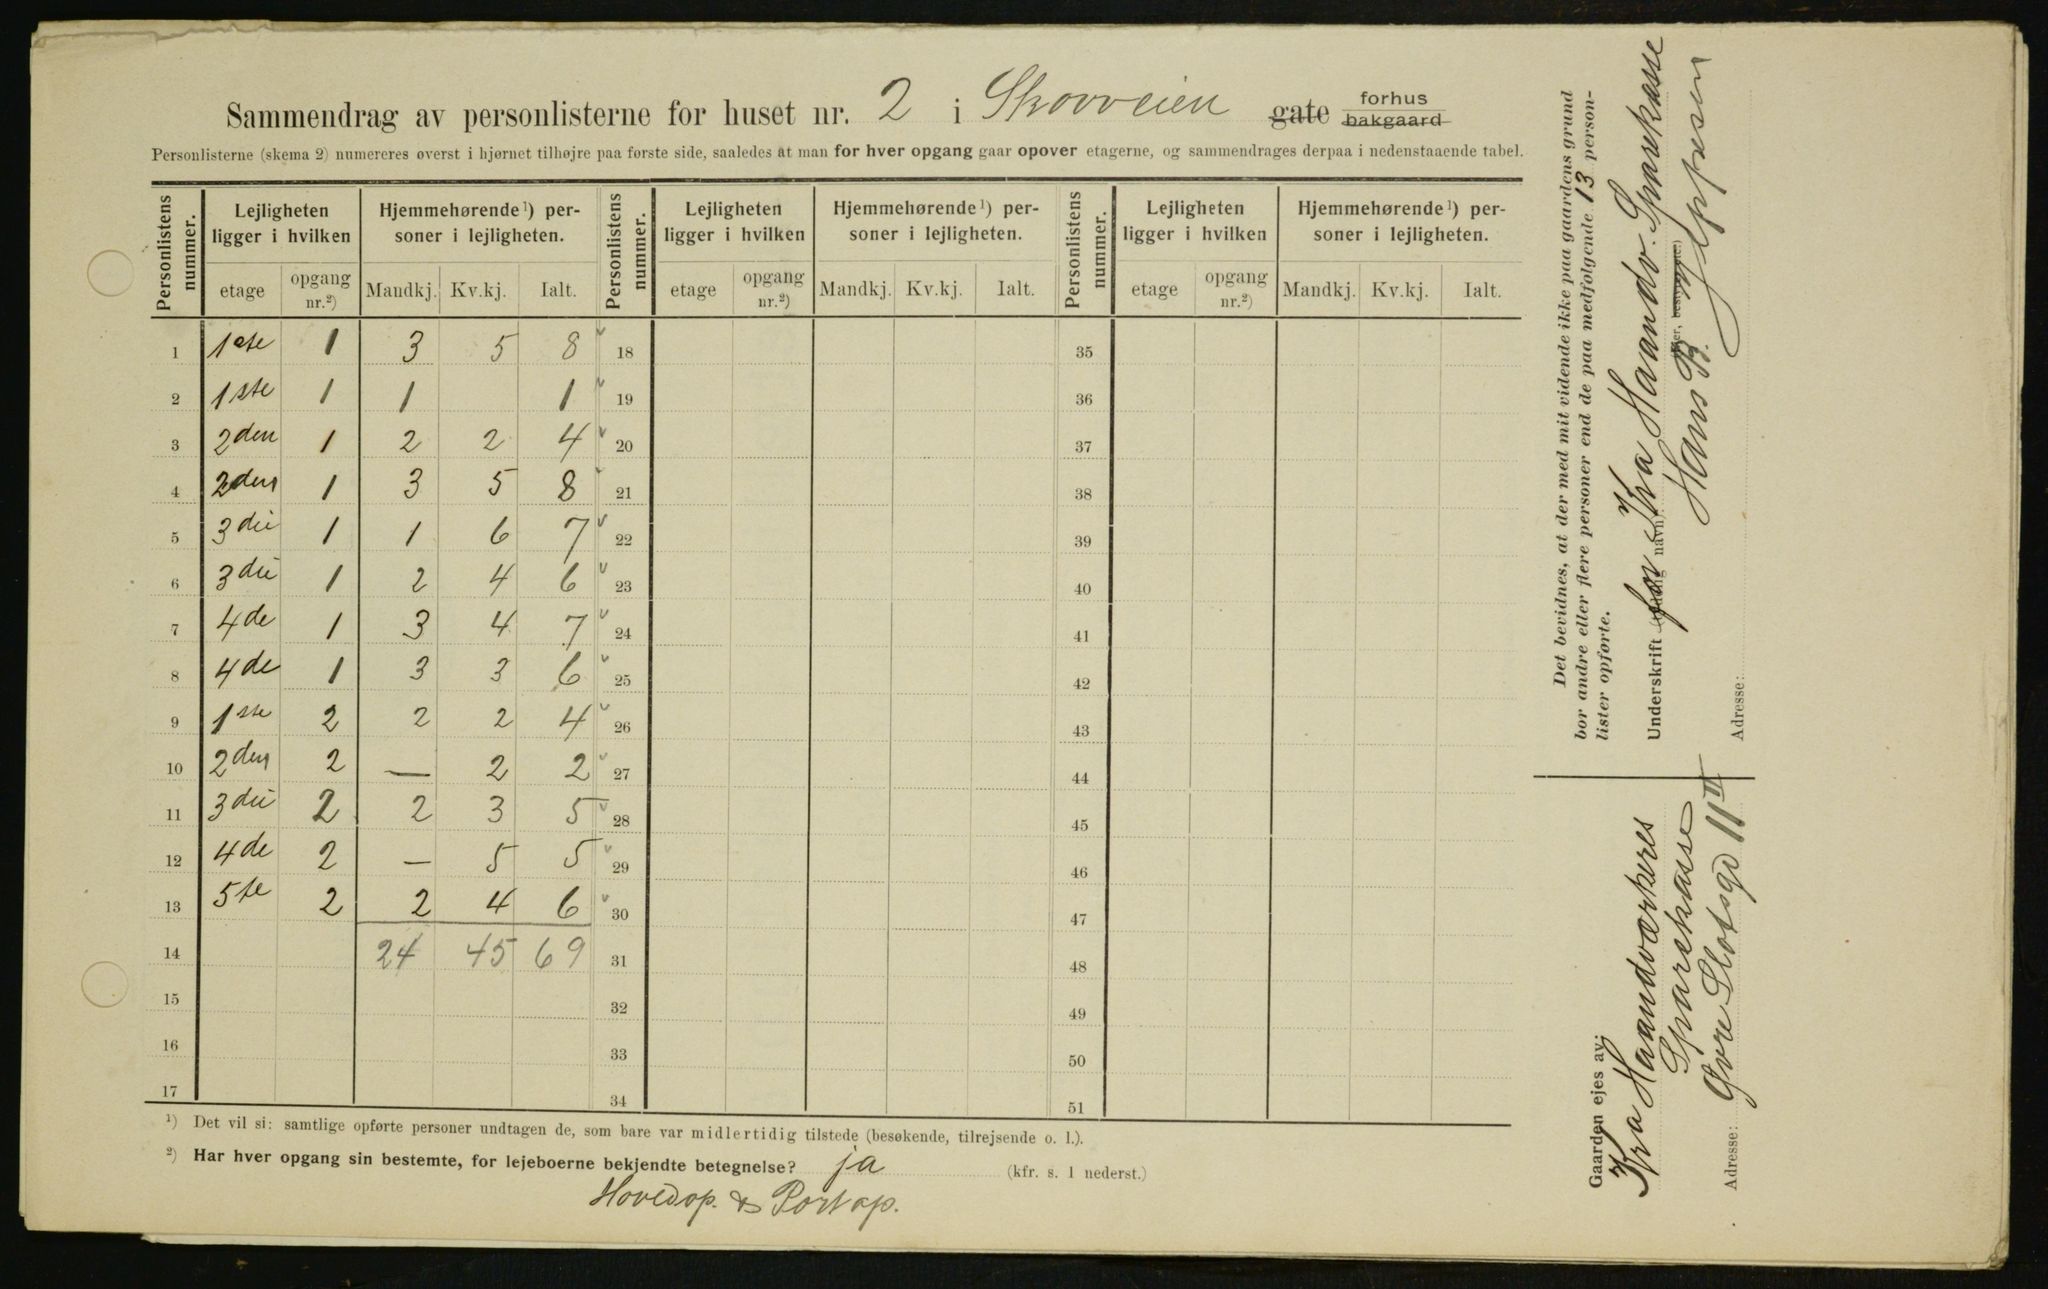 Sammendrag av personlisterne for huset nr. 2 i Skovveien gate forhus bakgaard
Personlisterne (skema 2) numereres øverst i hjørnet tilhøjre paa første side, saaledes at man for hver opgang gaar opover etagerne, og sammendrages derpaa i nedenstaaende tabel.
Personlistens nummer. Lejligheten ligger i hvilken Hjemmehørende 1) personer i lejligheten. Personlistens nummer. Lejligheten ligger i hvilken Hjemmehørende 1) personer i lejligheten. Personlistens nummer. Lejligheten ligger i hvilken Hjemmehørende 1) personer i lejligheten.
etage opgang nr.2) Mandkj. Kv.kj. Ialt. etage opgang nr.2) Mandkj. Kv.kj. Ialt. etage opgang nr.2) Mandkj. Kv.kj. Ialt.
1 1ste 1 3 5 8 v 18 35
2 1ste 1 1 1 v 19 36
3 2den 1 2 2 4 v 20 37
4 2den 1 3 5 8 v 21 38
5 3die 1 1 6 7 v 22 39
6 3die 1 2 4 6 v 23 40
7 4de 1 3 4 7 v 24 41
8 4de 1 3 3 6 v 25 42
9 1ste 2 2 2 4 v 26 43
10 2den 2 — 2 2 v 27 44
11 3die 2 2 3 5 v 28 45
12 4de 2 — 5 5 v 29 46
13 5te 2 2 4 6 v 30 47
14 24 45 69 31 48
15 32 49
16 33 50
17 34 51
1) Det vil si: samtlige opførte personer undtagen de, som bare var midlertidig tilstede (besøkende, tilrejsende o. l.).
2) Har hver opgang sin bestemte, for lejeboerne bekjendte betegnelse? ja (kfr. s. 1 nederst.)
Hovedop. & Portop.
Det bevidnes, at der med mit vidende ikke paa gaardens grund
bor andre eller flere personer end de paa medfølgende 13 person-
lister opførte.
Underskrift navn): for Kra Haandv. Sparekasse
Hans B. Jeppesen
Adresse:
Gaarden ejes av:
Kra Haandværkeres
Sparekasse
Adresse: Øvre Slotsgd 11 II